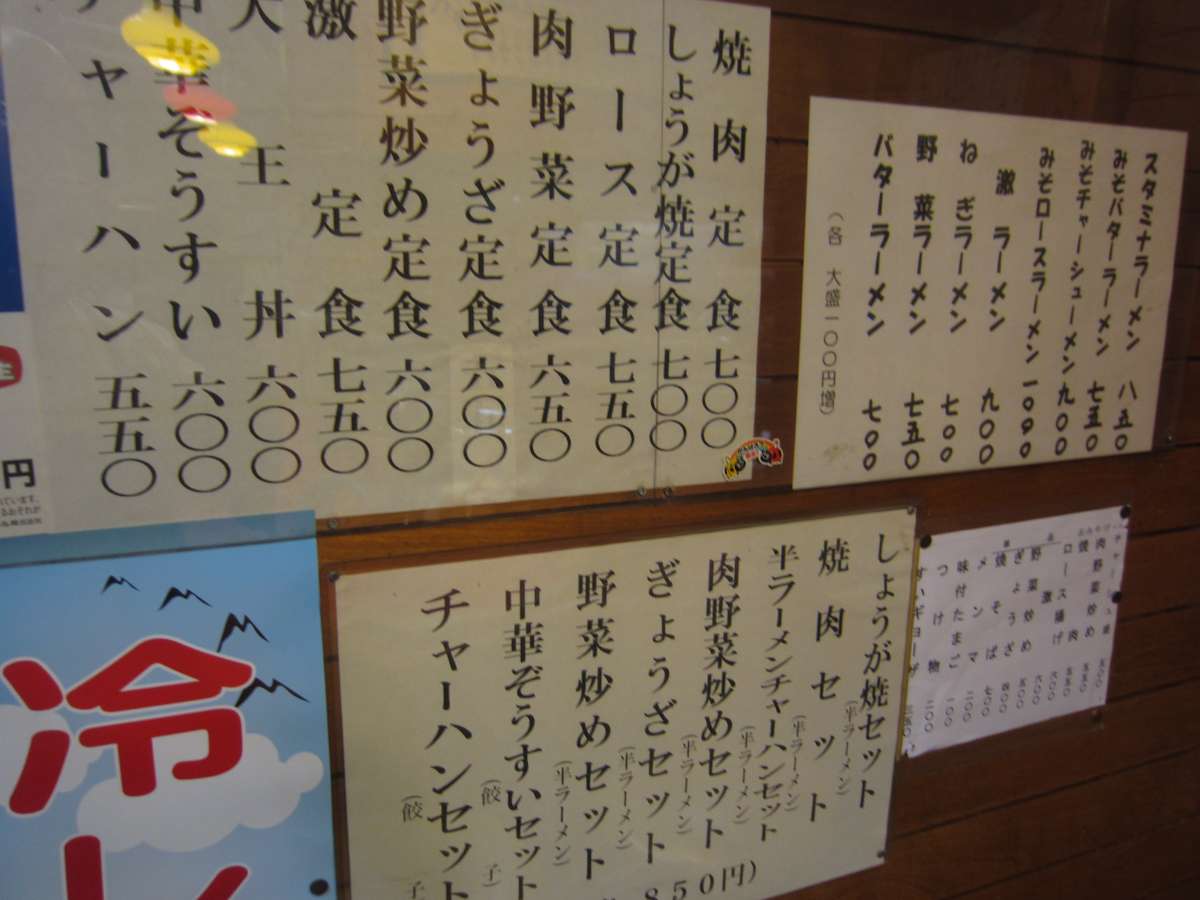 焼肉定食 七〇〇
しょうが焼定食 七〇〇
ロース定食 七五〇
肉野菜定食 六五〇
ぎょうざ定食 六〇〇
野菜炒め定食 六〇〇
激定食 七五〇
大王丼 六〇〇
中華ぞうすい 六〇〇
チャーハン 五五〇
スタミナラーメン 八五〇
みそバターラーメン 七五〇
みそチャーシューメン 九〇〇
みそロースラーメン 一〇〇〇
激ラーメン 九〇〇
ねぎラーメン 七〇〇
野菜ラーメン 七五〇
バターラーメン 七〇〇
(各 大盛一〇〇円増)
しょうが焼セット
(半ラーメン)
焼肉セット
(半ラーメン)
半ラーメンチャーハンセット
肉野菜炒めセット
(半ラーメン)
ぎょうざセット
(半ラーメン)
野菜炒めセット
(半ラーメン)
中華ぞうすいセット
(餃子)
チャーハンセット
(餃子)
850円)
肉野菜炒め 五五〇
ロース揚げ 六〇〇
野菜炒め 五〇〇
ぎょうざ 四〇〇
焼そば 七〇〇
メンマ 二〇〇
味付たまご 一〇〇
つけ物 二〇〇
すいギョーザ
円
冷し